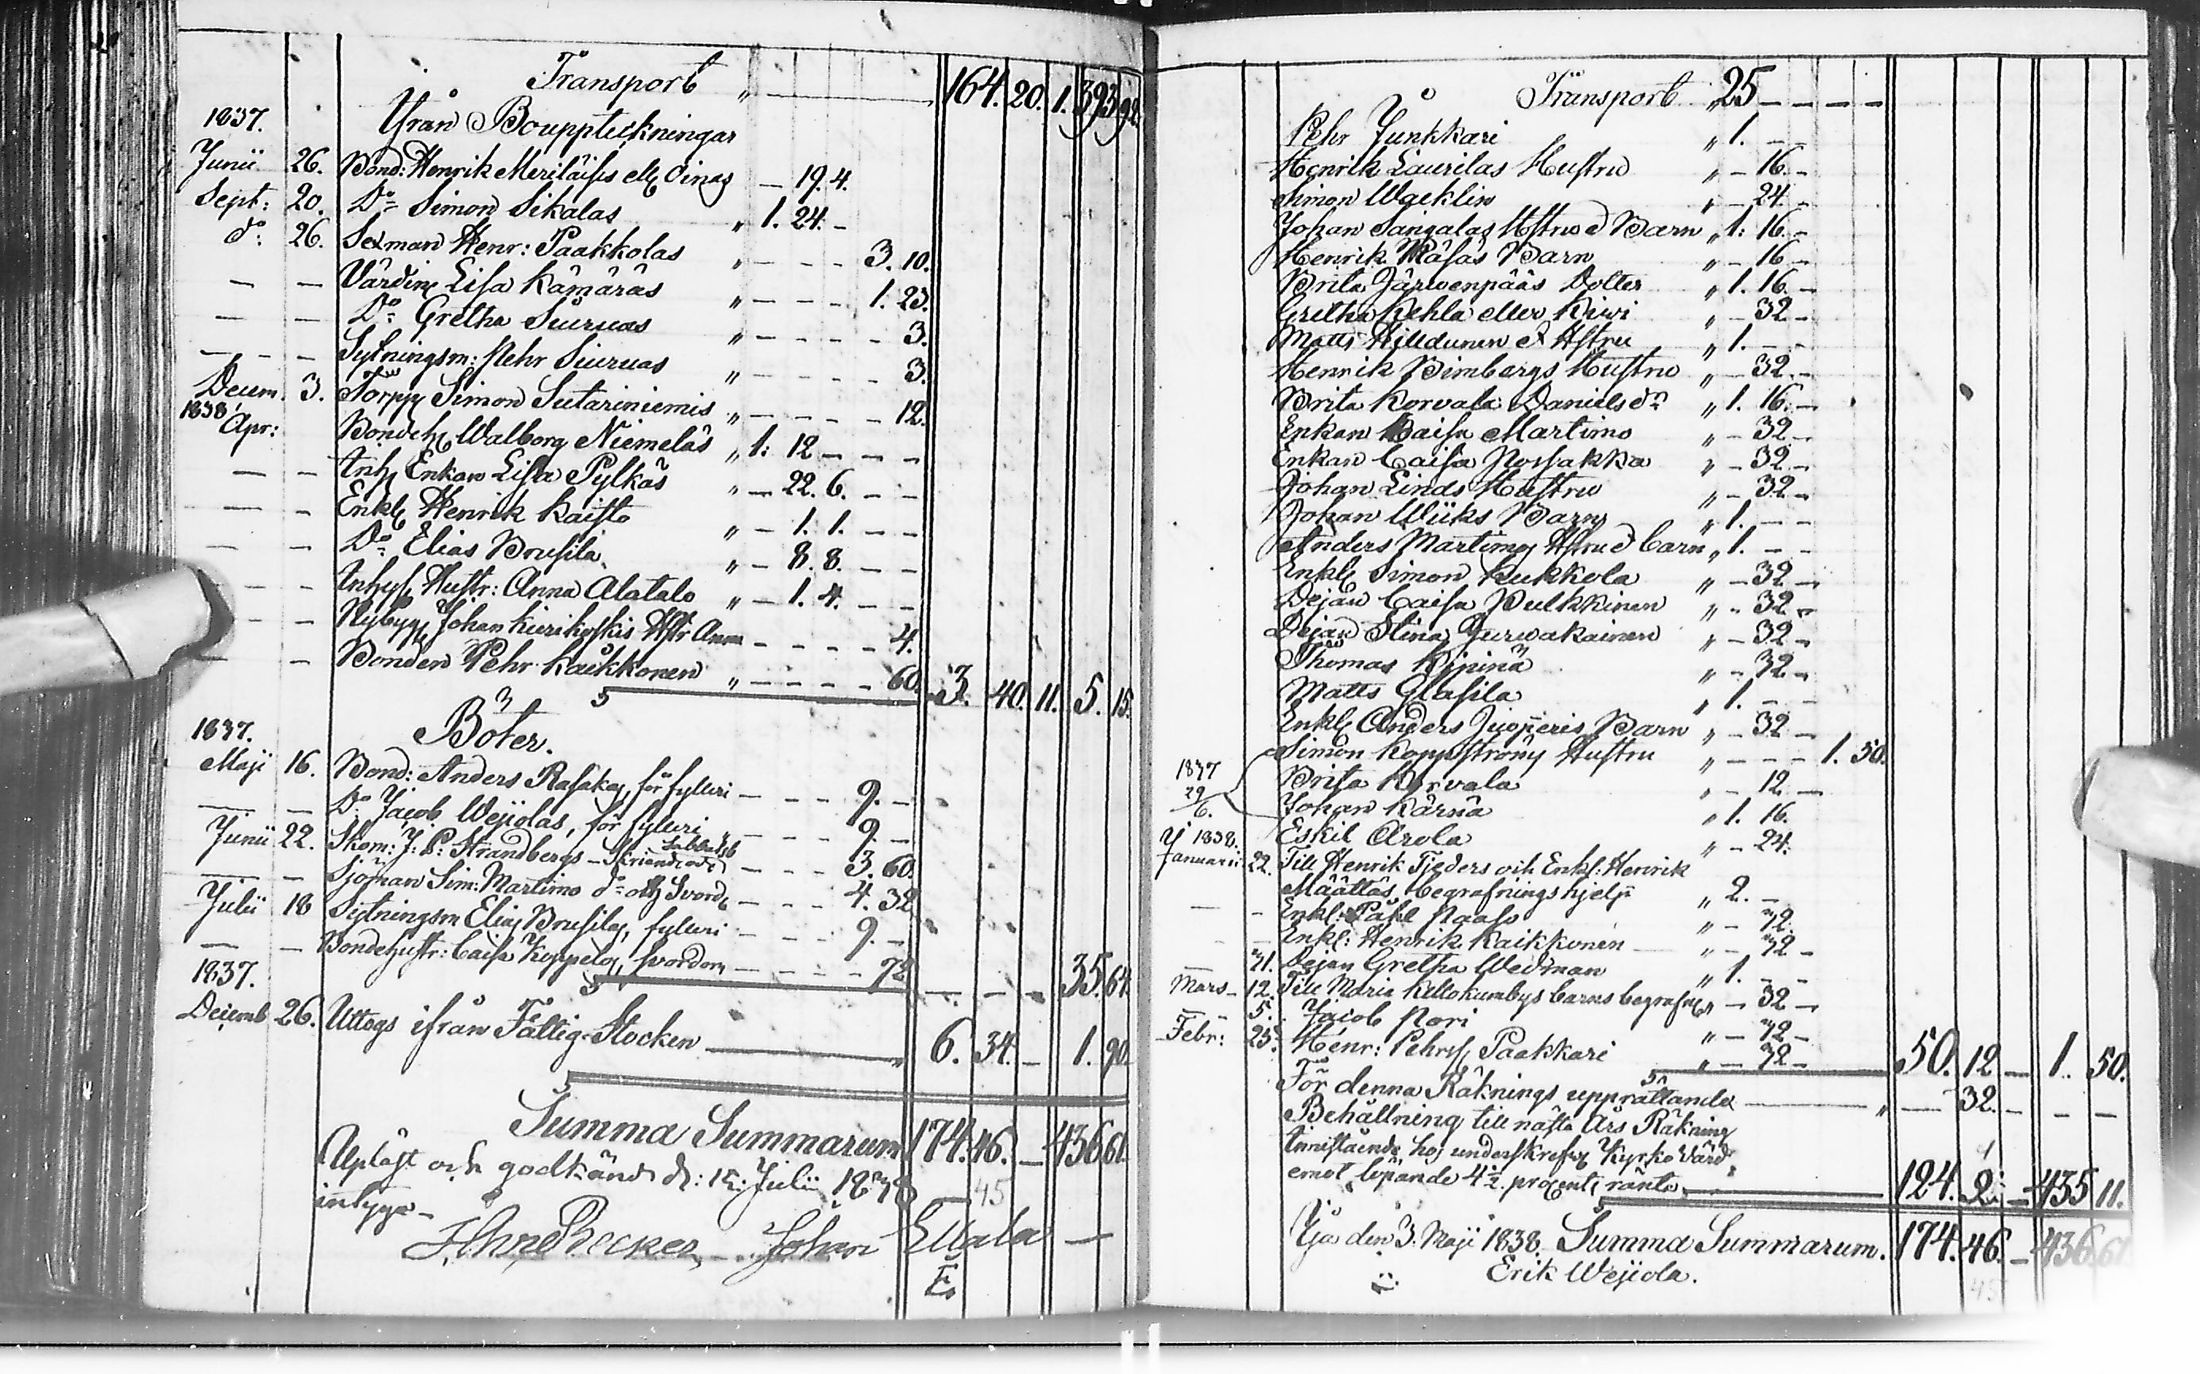 Transport „ — 164. 20. 1. 393 92.
1837. Ifrån Bouppteckningar
Junii 26. Bond: Henrik Meriläisis ell. Oinas — 19. 4.
Sept: 20. Do Simon Sikalas „ 1. 24. —
do: 26. Sexman Henr: Paakkolas „ — — — 3. 10.
— — Värdin Lisa Kämäräs „ — — — 1. 23.
— — Do Gretha Siuruas „ — — — — 3.
— — Sytningsm: Pehr Siuruas „ — — — — 3.
Decem. 3. Torpp Simon Sutariniemis „ — — — — 12.
1838 Apr: Bondeh Walborg Niemeläs „ 1: 12 — — —
— — Inh Enkan Lisa Pylkäs „ — 22. 6. — —
— — Enkl Henrik Kaisto „ — 1. 1. — —
— — Do Elias Brusila „ — 8. 8. — —
— — Inhys Hustr: Anna Alatalo „ — 1. 4. — —
— — Nybygg Johan Kierikoskis Hstr Anna — — — — 4.
— — Bonden Pehr Kaikkonen „ — — — — 60. 3. 40. 11. 5. 15.
1837. Böter.
Maji 16. Bond: Anders Rasakas, för fylleri — — — 9. —
— — Do Jacob Wejiolas, för fylleri „ — — — 9. —
Junii 22. Skom: J: P: Strandbergs — Sabbatsb — — — 3. 60.
— — Sjöman Sim: Martimo do och Svord — — — 4. 32
Julii 18 Sytningsm Elias Brusilas, fylleri — — — 9. —
— — Bondehustr: Caisa Koppelos, svordom — — — — 72 — — — 35. 64.
1837.
Decemb 26. Uttogs ifrån Fattig-Stocken — „ 6. 34. — 1. 90.
Summa Summarum 174. 46. — 436 61.
Upläst och godkänd d: 15: Julii 1838 45
intyga —
Johan Ellala
E

Transport „ 25 — — — —
Pehr Junkkari „ 1. — —
Henrik Laurilas Hustru „ — 16. —
Simon Waeklin „ — 24. —
Johan Sangalas Hstru o Barn „ 1: 16. —
Henrik Räsäs Barn „ — 16 —
Brita Järwenpääs Dotter „ 1. 16. —
Gretha Kehla eller Kiwi „ — 32 —
Matts Hildunen o Hstru „ 1. — —
Henrik Bimbergs Hustru „ — 32. —
Brita Korvala Danielsdr „ 1. 16. —
Enkan Caisa Martimo „ — 32 —
Enkan Caisa Possakka „ — 32. —
Johan Linds Hustru „ — 32 —
Johan Wiiks Barn „ 1. — —
Anders Martimos Hstru o barn „ 1. — —
Enkl Simon Kukkola „ — 32 —
Pejan Caisa Pulkkinen „ — 32. —
Pejan Stina Jurvakainen „ — 32 —
Thomas Kipinä „ — 32 —
Matts Glasila „ 1. — —
Enkl Anders Juoperis Barn „ — 32 —
Simon Koppströms Hustru „ — — — 1. 50.
1837 Brita Korvala „ — 12 —
29/6. Johan Kärnä „ 1. 16.
Eskil Arola „ — 24.
1838. Januarii 22. Till Henrik Tjeders och Enkl: Henrik
Määttäs begrafningshjelp „ 2. —
— — Enkl: Påhl Paaso „ — 72.
— — Enkl: Henrik Kaikkonen „ — 72 —
— 31. Pejan Gretha Wedman „ 1. — —
Mars — 12. Till Maria Kellokumbys barns begrafn „ — 32 —
— 5. Jacob Pori „ — 72 —
Febr: 25. Henr: Pehrs Paakkari „ — 72 — 50. 12 — 1. 50.
För denna Räknings upprättande — „ — 32. — — —
Behållning till nästa Års Räkning
innestående hos underskrefne Kyrko Värd
emot löpande 4½ procents ränta — 124. 2. — 435 11.
Ijo den 3. Maji 1838. Summa Summarum. 174. 46. — 436. 61
Erik Wejiola. 45